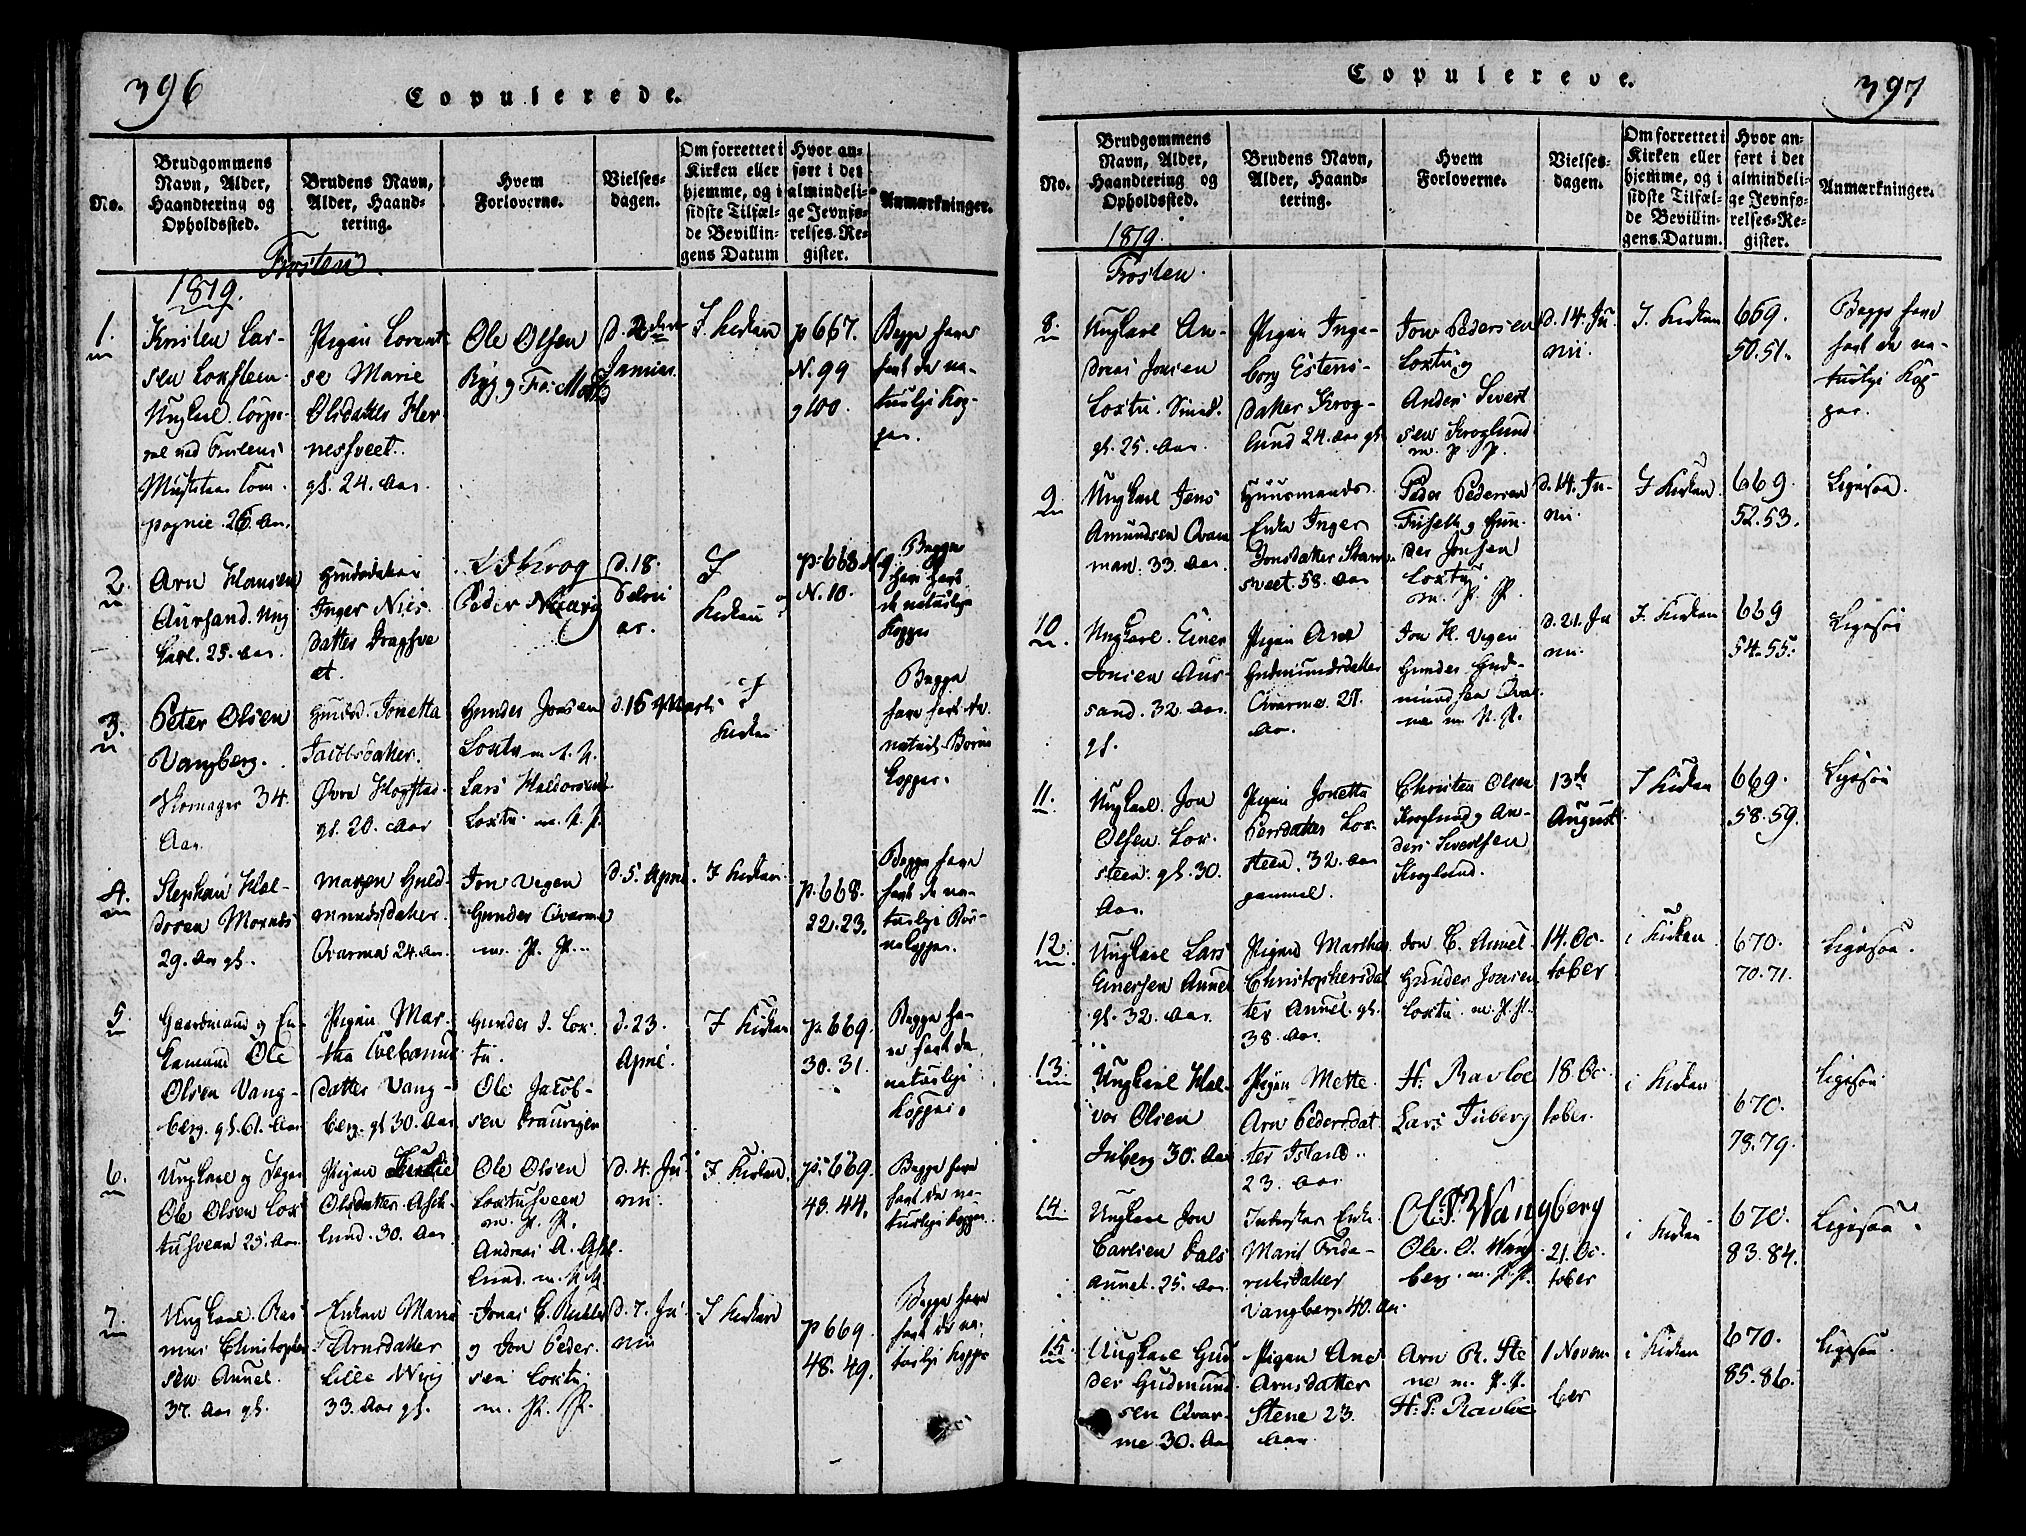 396
Copulerede.
No.
Brudgommens
Navn, Alder,
Haandtering og
Opholdssted.
Brudens Navn,
Alder, Haand-
tering.
Hvem
Forloverne.
Vielses-
dagen.
Om forrettet i
Kirken eller
hjemme, og i
sidste Tilfæl-
de Bevillin-
gens Datum
Hvor an-
ført i det
almindeli-
ge Jevnfø-
relses-Re-
gister.
Anmærkninger.
Frosten
1819.
1.
Kristen Lar-
sen Loxsteen
Ungkarl
26. Aar.
Pigen Lorent
se Marie
Olsdatter
gl. 24. Aar
Ole Olsen
Januar
I Kirken
p 667.
N. 99
og 100.
Begge have
havt de na-
turlige Kop-
per.
2.
Arn Hansen
Aursand. Ung
karl. 25. Aar.
Inger Niels
datter
et.
Peder
d. 18.
Febru
ar.
I
Kirken
p. 668
N. 10.
Begge
have havt
de naturlige
Kopper
3.
Peter Olsen
Vangberg.
34.
Aar.
Jonetta
Jacobsdatter.
Øvre
gl. 20. Aar
Gunder Jonsen
Loxtu m. P. P.
Lars Haldorsen
Loxtu. m. P. P.
d. 15 Marts
I
Kirken
Begge
have havt de
naturl. Børne
Kopper.
4.
Stephan Hal-
dorsen Moxnes
29. Aar gl.
Maren Guld-
mundsdatter.
Qvarme 24. Aar.
Jon Vigen
Gunder Qvarme
m. P. P.
d. 5. April.
I Kirken
p. 668.
22. 23.
Begge have
havt de na-
turlige Bør-
nekopper.
5.
Gaardmand og En-
kemand Ole
Olsen Vang-
berg. gl. 61. Aar
Pigen Mar-
tha
datter Vang-
berg. gl 30. Aar
Gunder J. Lox-
tu.
Ole Jacob-
sen
d. 23.
April.
I Kirken
p. 669.
30. 31.
Begge ha-
ve havt de
naturlige
Kopper.
6.
Ungkarl og
Ole Olsen Lox
tusveen 25. Aar
Pigen
Olsdatter
lund. 30. Aar
Ole Olsen
Loxtusveen
m. P. P.
Andreas A.
lund. m. P. P.
d. 4. Ju
nii.
I Kirken
p. 669.
43. 44.
Begge have
havt de na-
turlige Kopper
7.
Ungkarl Ras
mus Christopher
sen Aunet.
37. Aar gl.
Arnsdatter
33. Aar gl.
Jonas C.
og Jon Peder-
sen Loxtu
m. P. P.
d. 7. Ju
nii
I Kirken
p 669.
48. 49.
Begge have
havt de na-
turlige Kopper
Copulerede.
397
No.
Brudgommens
Navn, Alder,
Haandtering og
Opholdssted.
Brudens Navn,
Alder, Haand-
tering.
Hvem
Forloverne.
Vielses-
dagen.
Om forrettet i
Kirken eller
hjemme, og i
sidste Tilfæl-
de Bevillin-
gens Datum.
Hvor an-
ført i det
almindeli-
ge Jevnfø-
relses-Re-
gister.
Anmærkninger.
1819.
Frosten.
8.
Ungkarl An-
dreas Jonsen
Loxtu.
gl. 25. Aar.
Pigen Inge-
borg Estens-
datter Krog-
lund 24. Aar gl.
Jon Pedersen
Loxtu og
Anders Sivert
sen Kroglund
m. P. P.
d. 14. Ju
nii.
I. Kirken
669.
50. 51.
Begge have
havt de na-
turlige Kop-
per.
9.
Ungkarl Jens
Amundsen
33. Aar.
Huusmands
Enke Inger
Jonsdatter
58. Aar
Peder Pedersen
og Gun-
der Jonsen
Loxtu.
m. P. P.
d. 14. Ju-
nii.
I Kirken
669.
52. 53.
Ligesaa.
10.
Ungkarl. Einer
Jonsen Aur-
sand. 32. Aar
gl.
Pigen Ane
Gudmundsdatter
Qvarme. 21.
Aar.
Jon H. Vigen
Gunder Gud-
mundsen Qvar
me m. P. P.
d. 21. Ju
nii.
I. Kirken
669
54. 55.
Ligesaa
11.
Ungkarl. Jon
Olsen Lox-
steen. gl. 30.
Aar.
Pigen Jonetta
Persdatter Lox-
steen. 32. Aar
gammel.
Christen Olsen
Kroglund og An-
ders Sivertsen
Kroglund.
13de
August
I Kirken
669.
58. 59.
Ligesaa
12.
Ungkarl Lars
Einersen Aunet
gl. 32. Aar.
Pigen Martha
Christophersdat
ter Aunet. gl.
38. Aar.
Jon C. Aunet
Gunder Jonsen
Loxtu. m. P. P.
14. Oc-
tober
i Kirken
670.
70. 71.
Ligesaa.
13.
Ungkarl Hal-
vor Olsen
Juberg 30. Aar
Pigen Mette
Arn Pedersdat
ter Island.
23. Aar
H. Ravloe
Lars Juberg
18. Oc-
tober.
i Kirken
670.
78. 79.
Ligesaa
14.
Ungkarl Jon
Carlsen Dals
aunet. 25. Aar
Enke
Marit Fride-
richsdatter
Vangberg. 40. Aar.
Ol. P. Wangberg
Ole. O. Wang
berg. m. P. P.
21. Oc-
tober
i Kirken
670.
83. 84.
Ligesaa
15.
Ungkarl Gun
der Gudmund
sen Qvar-
me 30. Aar
Pigen Ane
Arnsdatter
Stene 23.
Aar
Arn R. Ste
ne m. P. P.
H. P. Ravloe
1 Novem
ber
i Kirken
670.
85. 86.
Ligesaa.